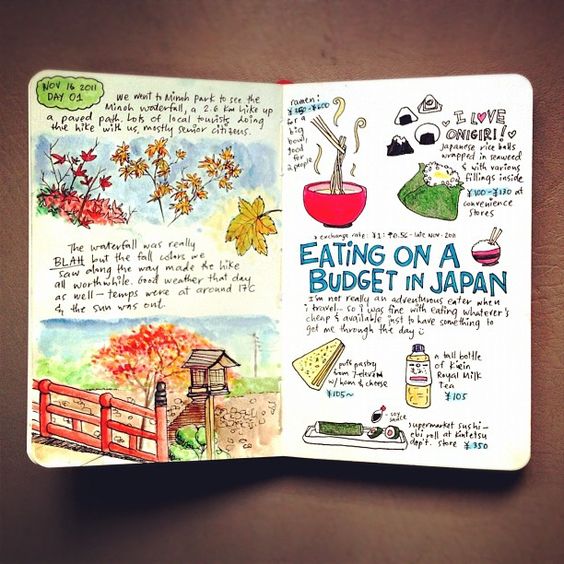 NOV 16 2011
DAY 01
We went to Minoh Park to see the
Minoh waterfall, a 2.6 km hike up
a paved path. Lots of local tourists doing
the hike with us, mostly senior citizens.
The waterfall was really
BLAH but the fall colors we
saw along the way made the hike
all worthwhile. Good weather that day
as well - temps were at around 17°C
& the sun was out.
ramen:
¥350-¥600
for a
big
bowl,
good
for
2 people
I LOVE
ONIGIRI!
Japanese rice balls
wrapped in seaweed
& with various
fillings inside
¥100-¥130 at
convenience
stores
> exchange rate: ¥1: ₱0.56 - late Nov. 2011
EATING ON A
BUDGET IN JAPAN
I'm not really an adventurous eater when
I travel.. so I was fine with eating whatever's
cheap & available just to have something to
get me through the day
puff pastry
from 7-eleven
w/ ham & cheese
¥105~
a tall bottle
of Kirin
Royal Milk
Tea
¥105
- soy
sauce
supermarket sushi -
ebi roll at Kintetsu
dep't. store ¥350